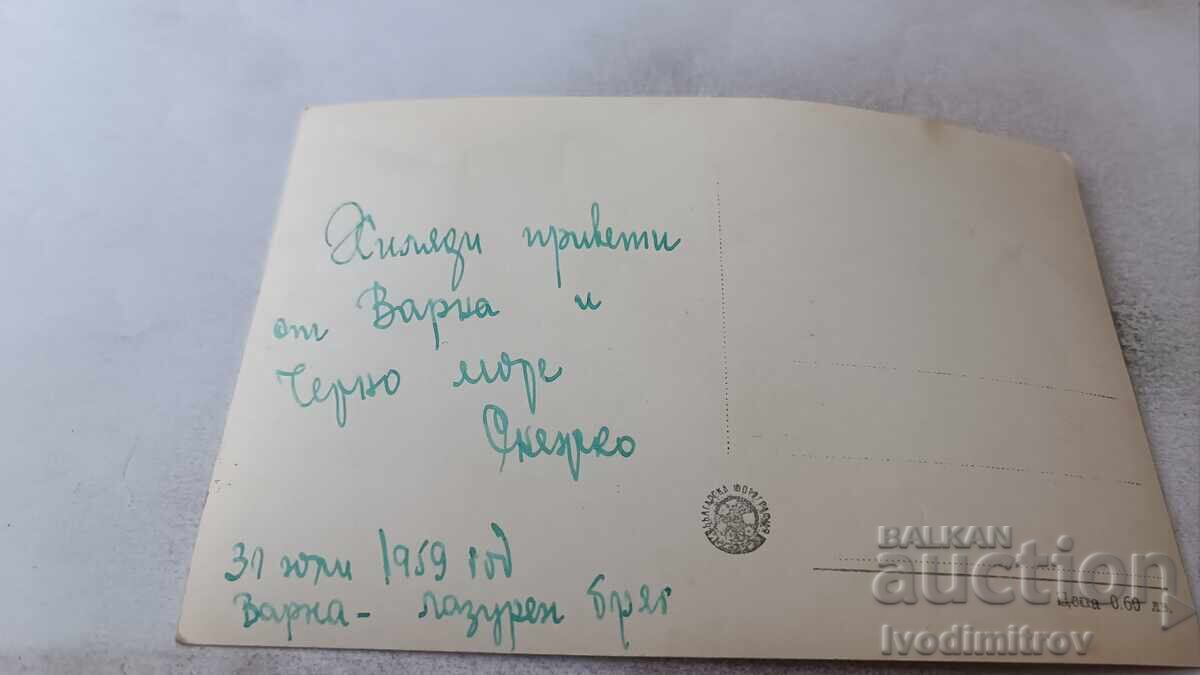 Хиляди привети
от Варна и
Черно море
Снежко
31 юли 1959 год
Варна - лазурен бряг
БЪЛГАРСКА ФОТОГРАФИЯ
Цена 0.60 лв.
BALKAN
auction
Ivodimitrov